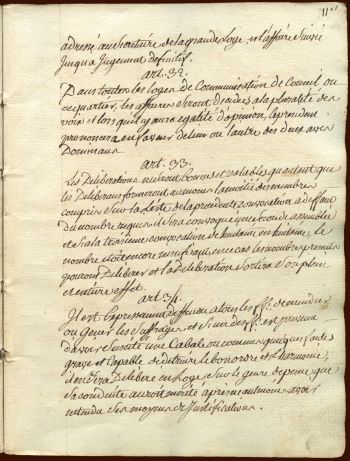 11
adressé au secrétaire de la grande Loge, et l'affaire suivie
jusqu'a Jugement definitif.
art. 32.
Dans toutes les loges de Communication de Conseil ou
de quartier, les affaires seront décidées a la pluralité des
voix et lorsqu'il y aura egalité d'opinion, le président
prononcera en faveur de l'un ou l'autre des deux avis
Dominans.
art. 33.
Les Deliberations ne seront bonnes et valables qu'autant que
les Deliberans formeront au moins la moitié des membres
compris sur la liste de la précédente convocation a deffaut
du nombre requis il sera convoqué une seconde assemblée
et si a la troisieme convocation de huitaine en huitaine, le
nombre etoit encore insuffisant, en ce cas les membres présents
pouront Deliberer et la deliberation sortira son plein
et entier effet.
art. 34.
Il est Expressement deffendu a tous les ff. de mendier
ou gêner les Suffrages et si un des ff. est prevenu
d'avoir suscité une Cabale ou commis quelques fautes
grave et Capable de detruire le bon ordre et l'harmonie,
il en sera Deliberé en Loge sur le genre de peine que
sa conduite auroit merité après neantmoins avoir
entendu ses moyens de Justifications.